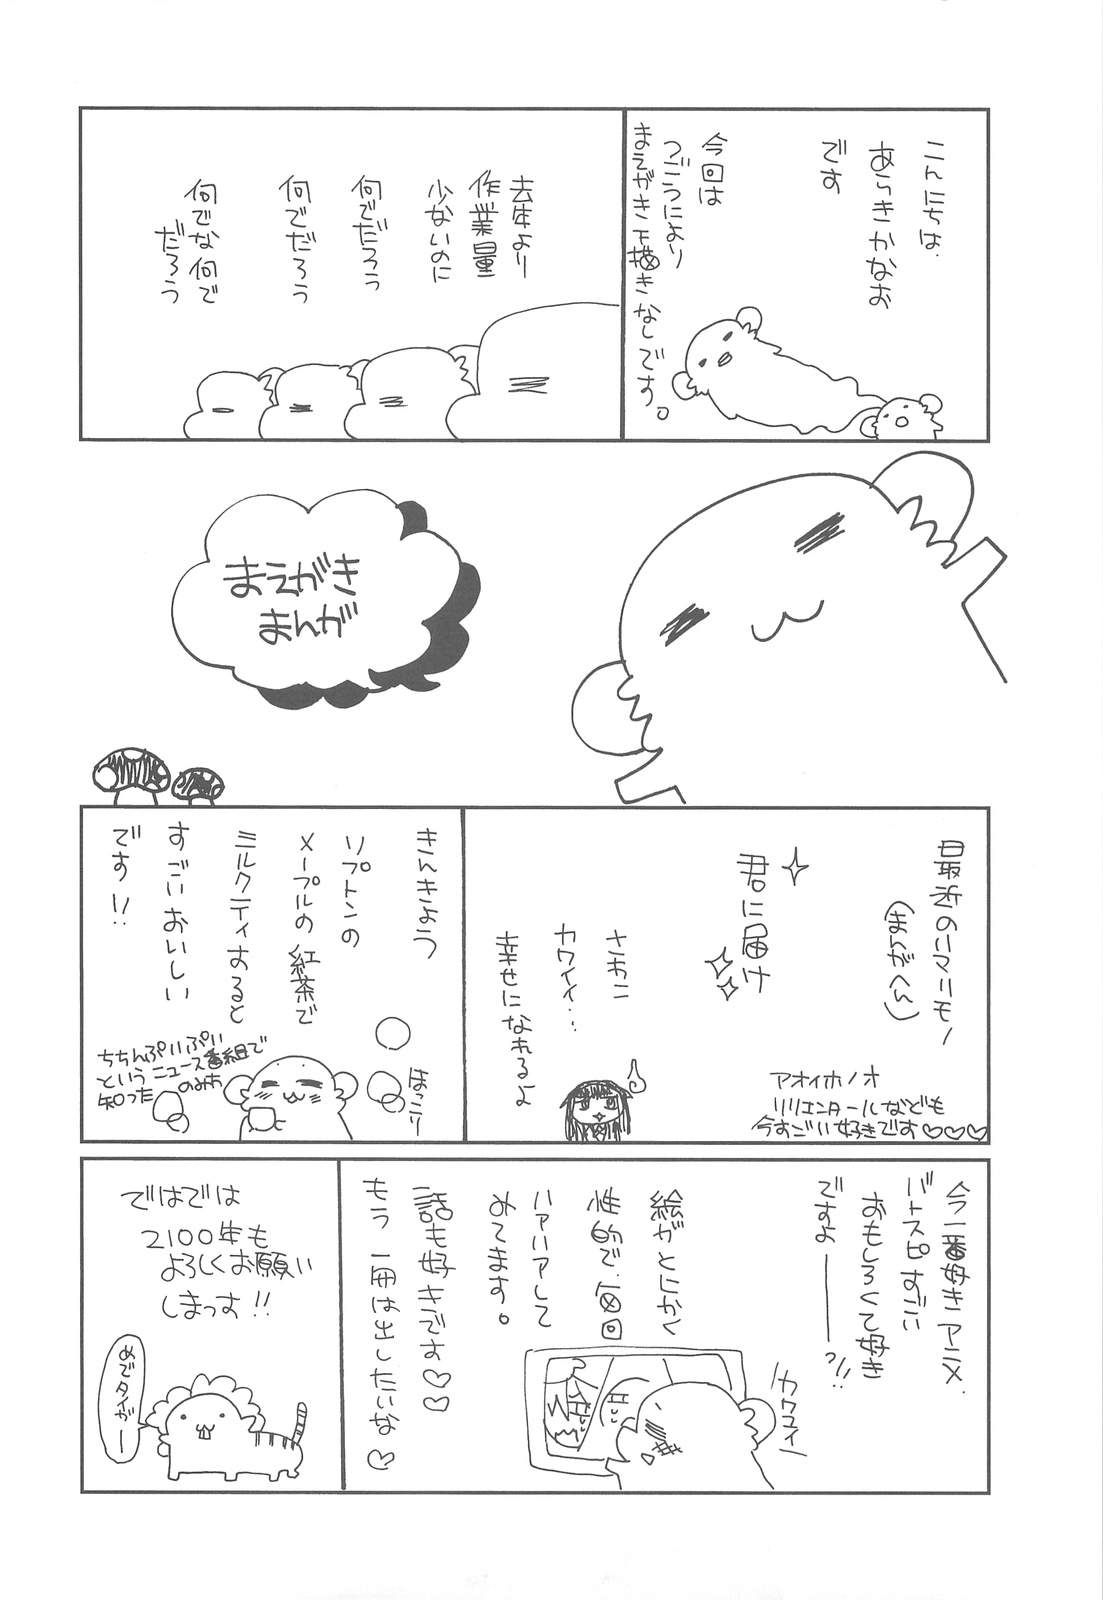 こんにちは
あらきかなお
です
今回は
つごうにより
まえがき下描きなしです。
去年より
作業量
少ないのに
何でだろう
何でだろう
何でな何で
だろう
まえがき
まんが
最近のハマリモノ
(まんがへん)
君に届け
さわこ
カワイイ…
幸せになれるよ
アオイホノオ
リリエンタールなども
今すごい好きです♡♡♡
きんきょう
リプトンの
メープルの紅茶で
ミルクティするると
すごいおいしい
です!!
ほっこり
ちちんぷいぷい
というニュース番組で
知った
のみね
今一番好きアニメ
バトスピすごい
おもしろくて好き
ですよーーー?!!
絵がとにかく
性的で毎回
ハァハァして
めてます。
カワユイ
一話も好キです♡♡♡
もう一冊は出したいな♡
ではでは
2100年も
よろしくお願い
しまっす!!
めでタイガー